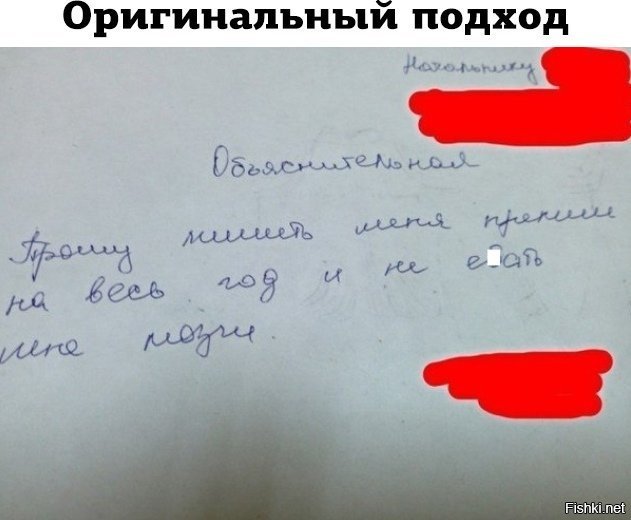 Оригинальный подход
Начальнику
Объяснительная
Прошу лишить меня премии
на весь год и не е ать
мне мозги.
Fishki.net